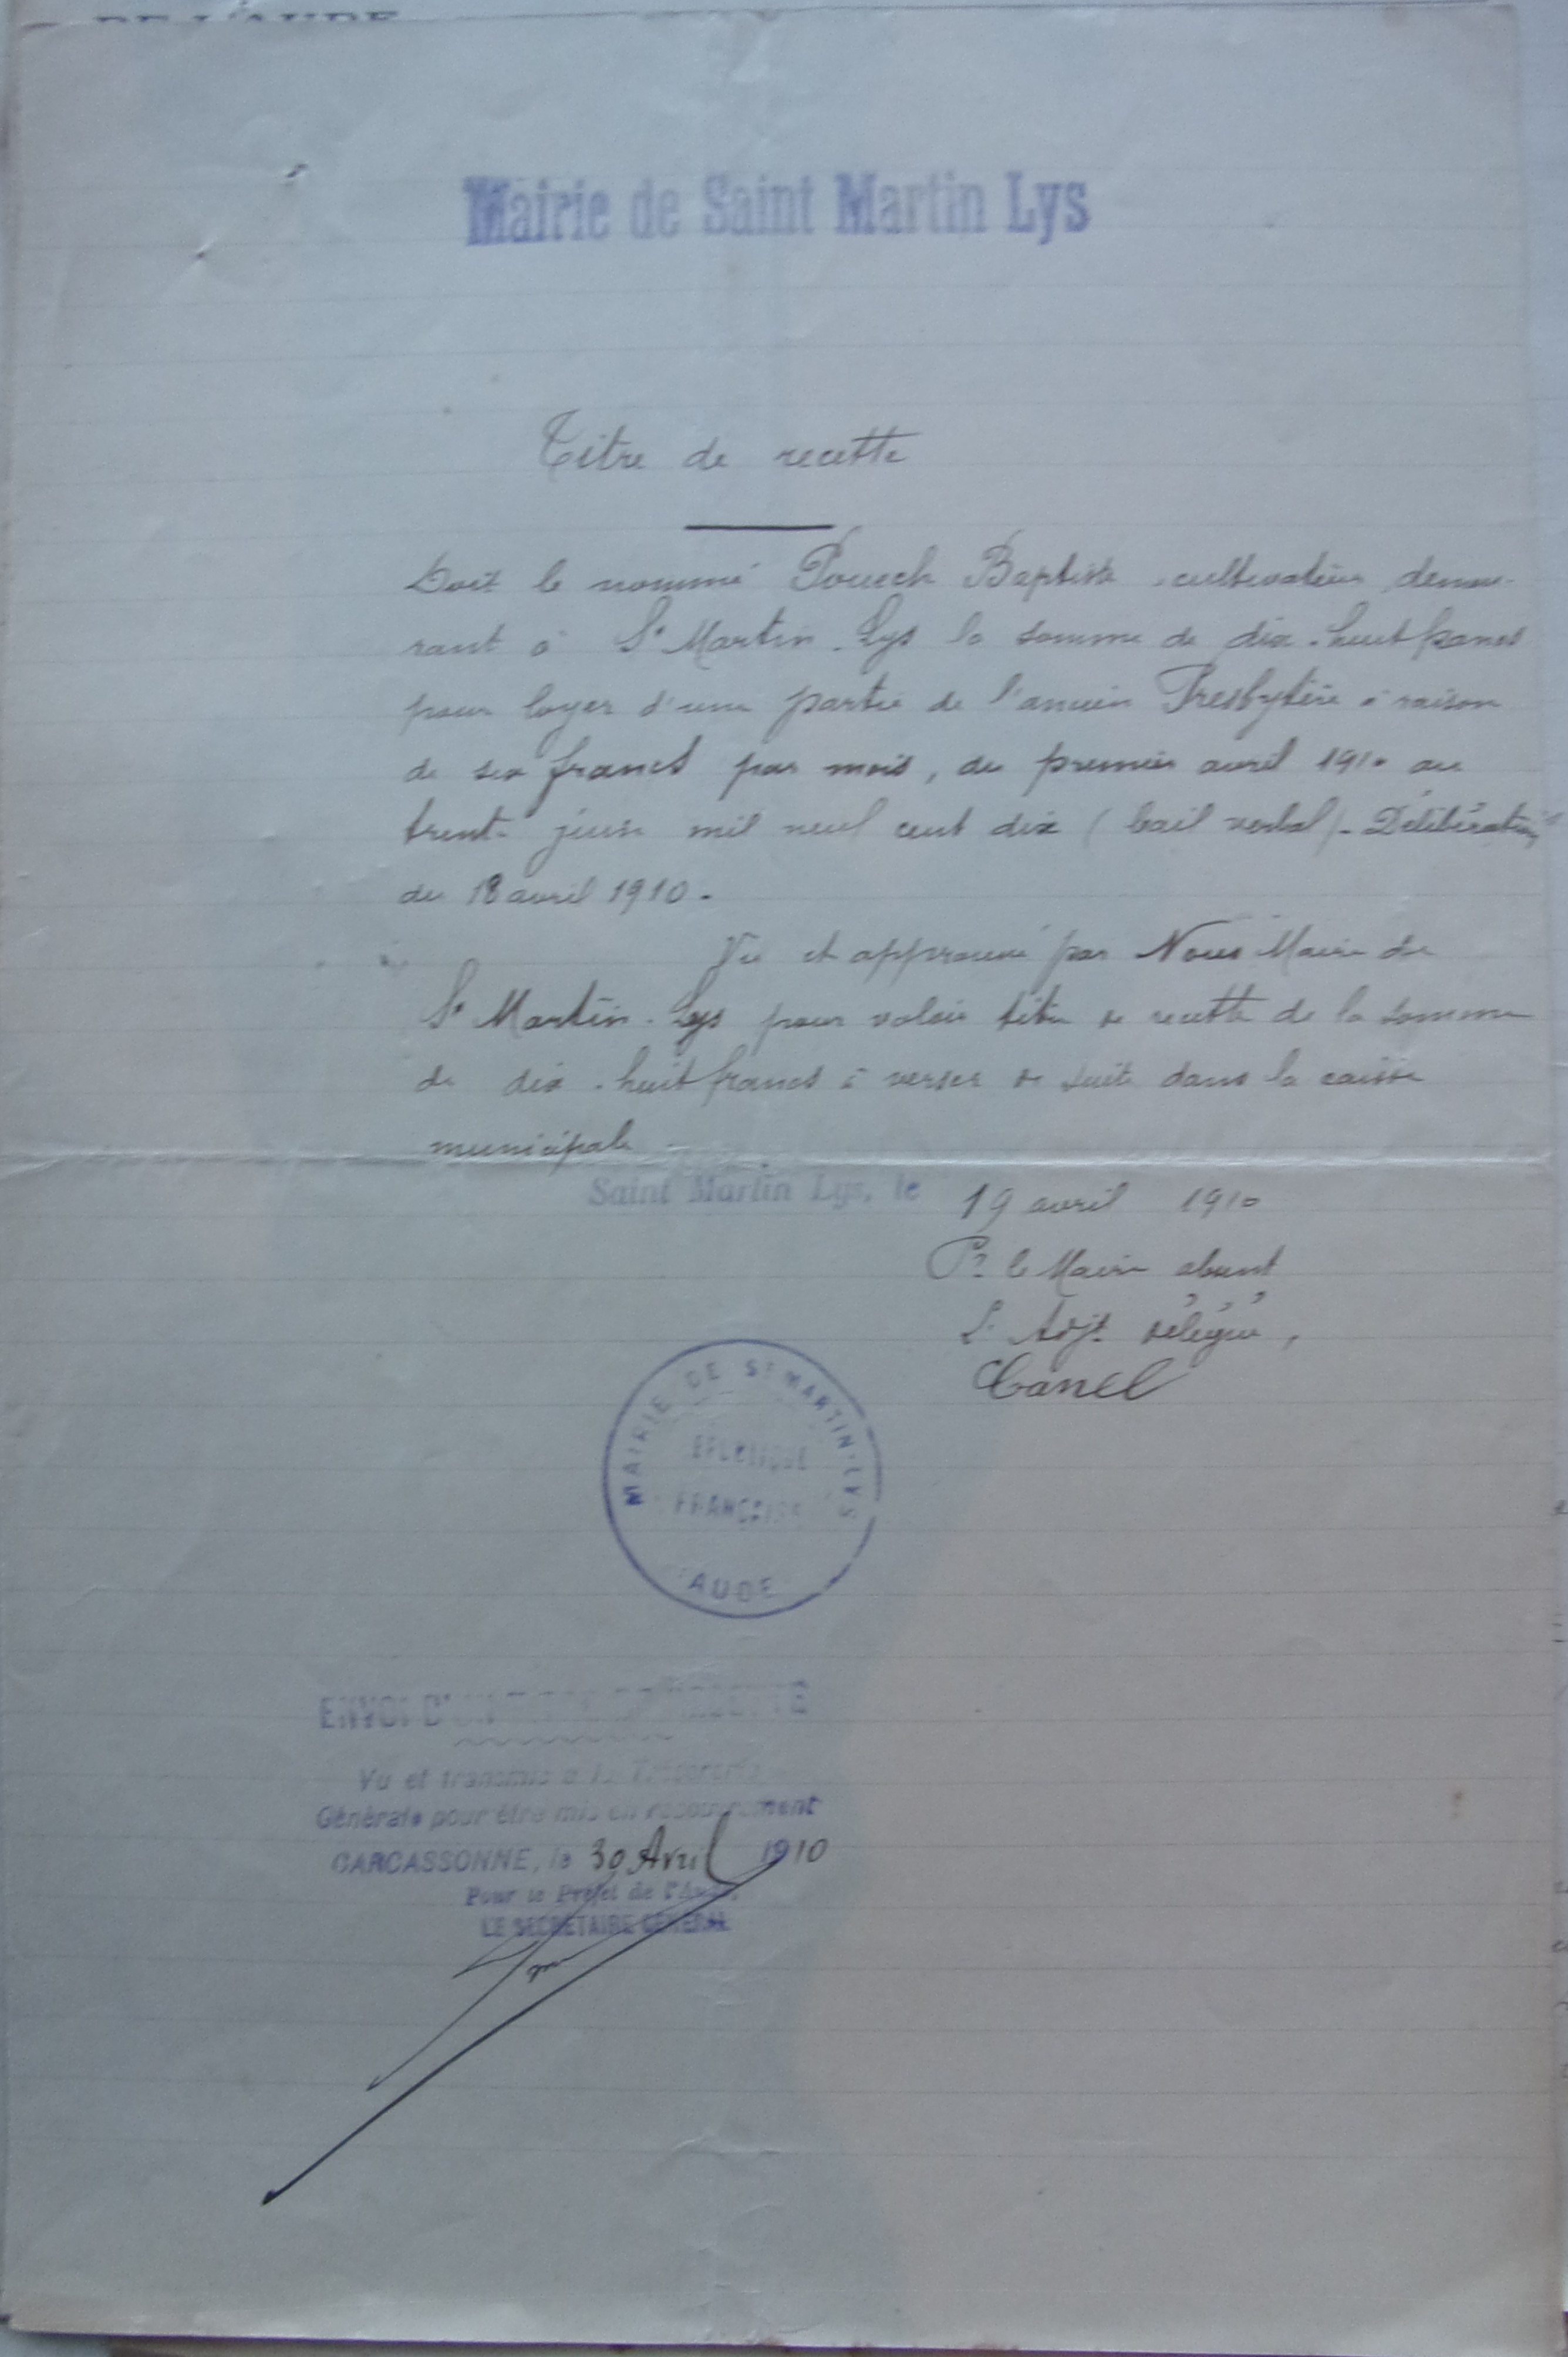 DE L'AUDE
Mairie de Saint Martin Lys
Titre de recette
Doit le nommé Pouech Baptiste cultivateur demeu-
rant à St Martin-Lys la somme de dix-huit francs
pour loyer d'une partie de l'ancien Presbytère à raison
de six francs par mois, du premier avril 1910 au
trente juin mil neuf cent dix (bail verbal). Délibération
du 18 avril 1910.
Vu et approuvé par Nous Maire de
St Martin-Lys pour valoir titre de recette de la somme
de dix-huit francs à verser de suite dans la caisse
municipale
Saint Martin Lys, le 19 avril 1910
Pr le Maire absent
L'Adjt délégué,
Canel
MAIRIE DE ST MARTIN-LYS
REPUBLIQUE
FRANÇAISE
AUDE
ENVOI D'UN TITRE DE RECETTE
Vu et transmis à la Trésorerie
Générale pour être mis en recouvrement
CARCASSONNE, le 30 Avril 1910
Pour le Préfet de l'Aude,
LE SECRETAIRE GENERAL